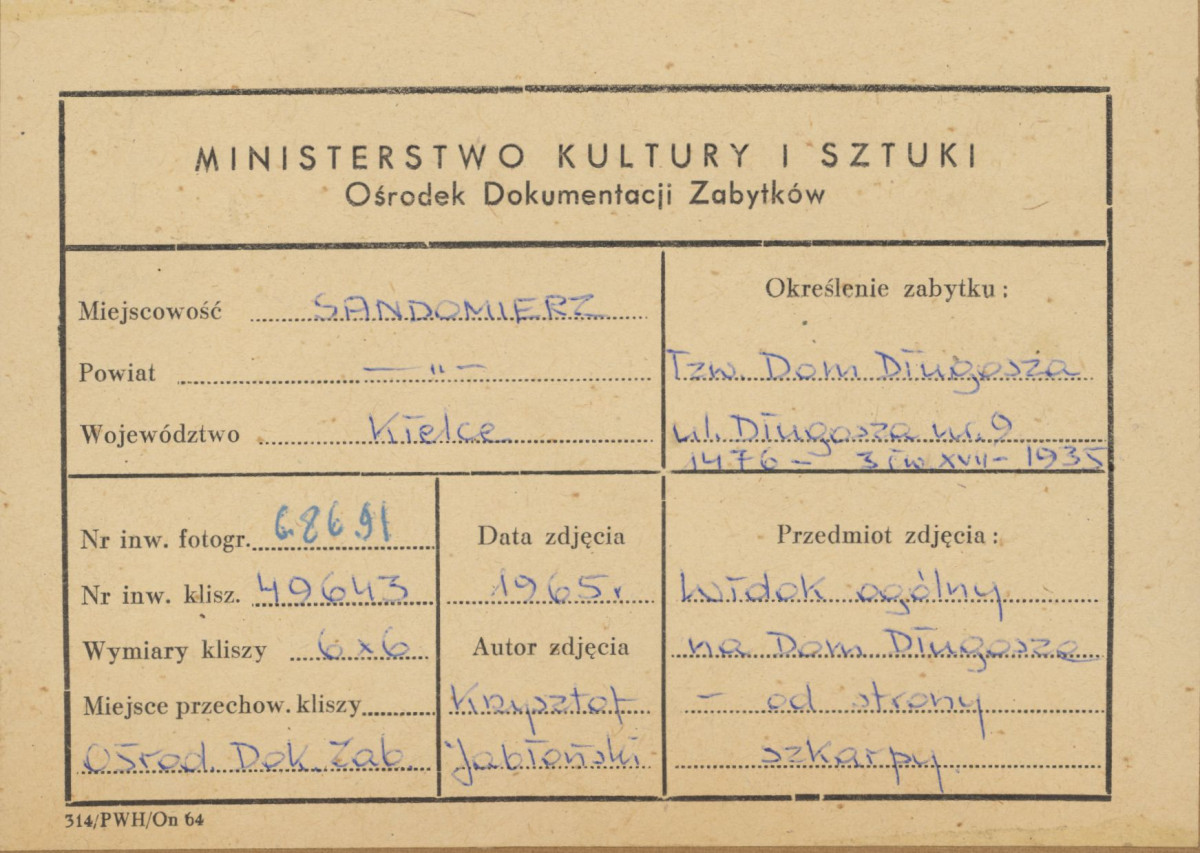 MINISTERSTWO KULTURY I SZTUKI
Ośrodek Dokumentacji Zabytków
Miejscowość SANDOMIERZ
Powiat — " —
Województwo Kielce
Określenie zabytku:
Tzw. Dom Długosza
ul. Długosza nr. 9
1476 – 3 ćw XVII – 1935
Nr inw. fotogr. 68691
Nr inw. klisz. 49643
Wymiary kliszy 6x6
Miejsce przechow. kliszy
Ośrod. Dok. Zab.
Data zdjęcia
1965r.
Autor zdjęcia
Krzysztof
Jabłoński
Przedmiot zdjęcia:
Widok ogólny
na Dom Długosza
– od strony
szkarpy.
314/PWH/On 64